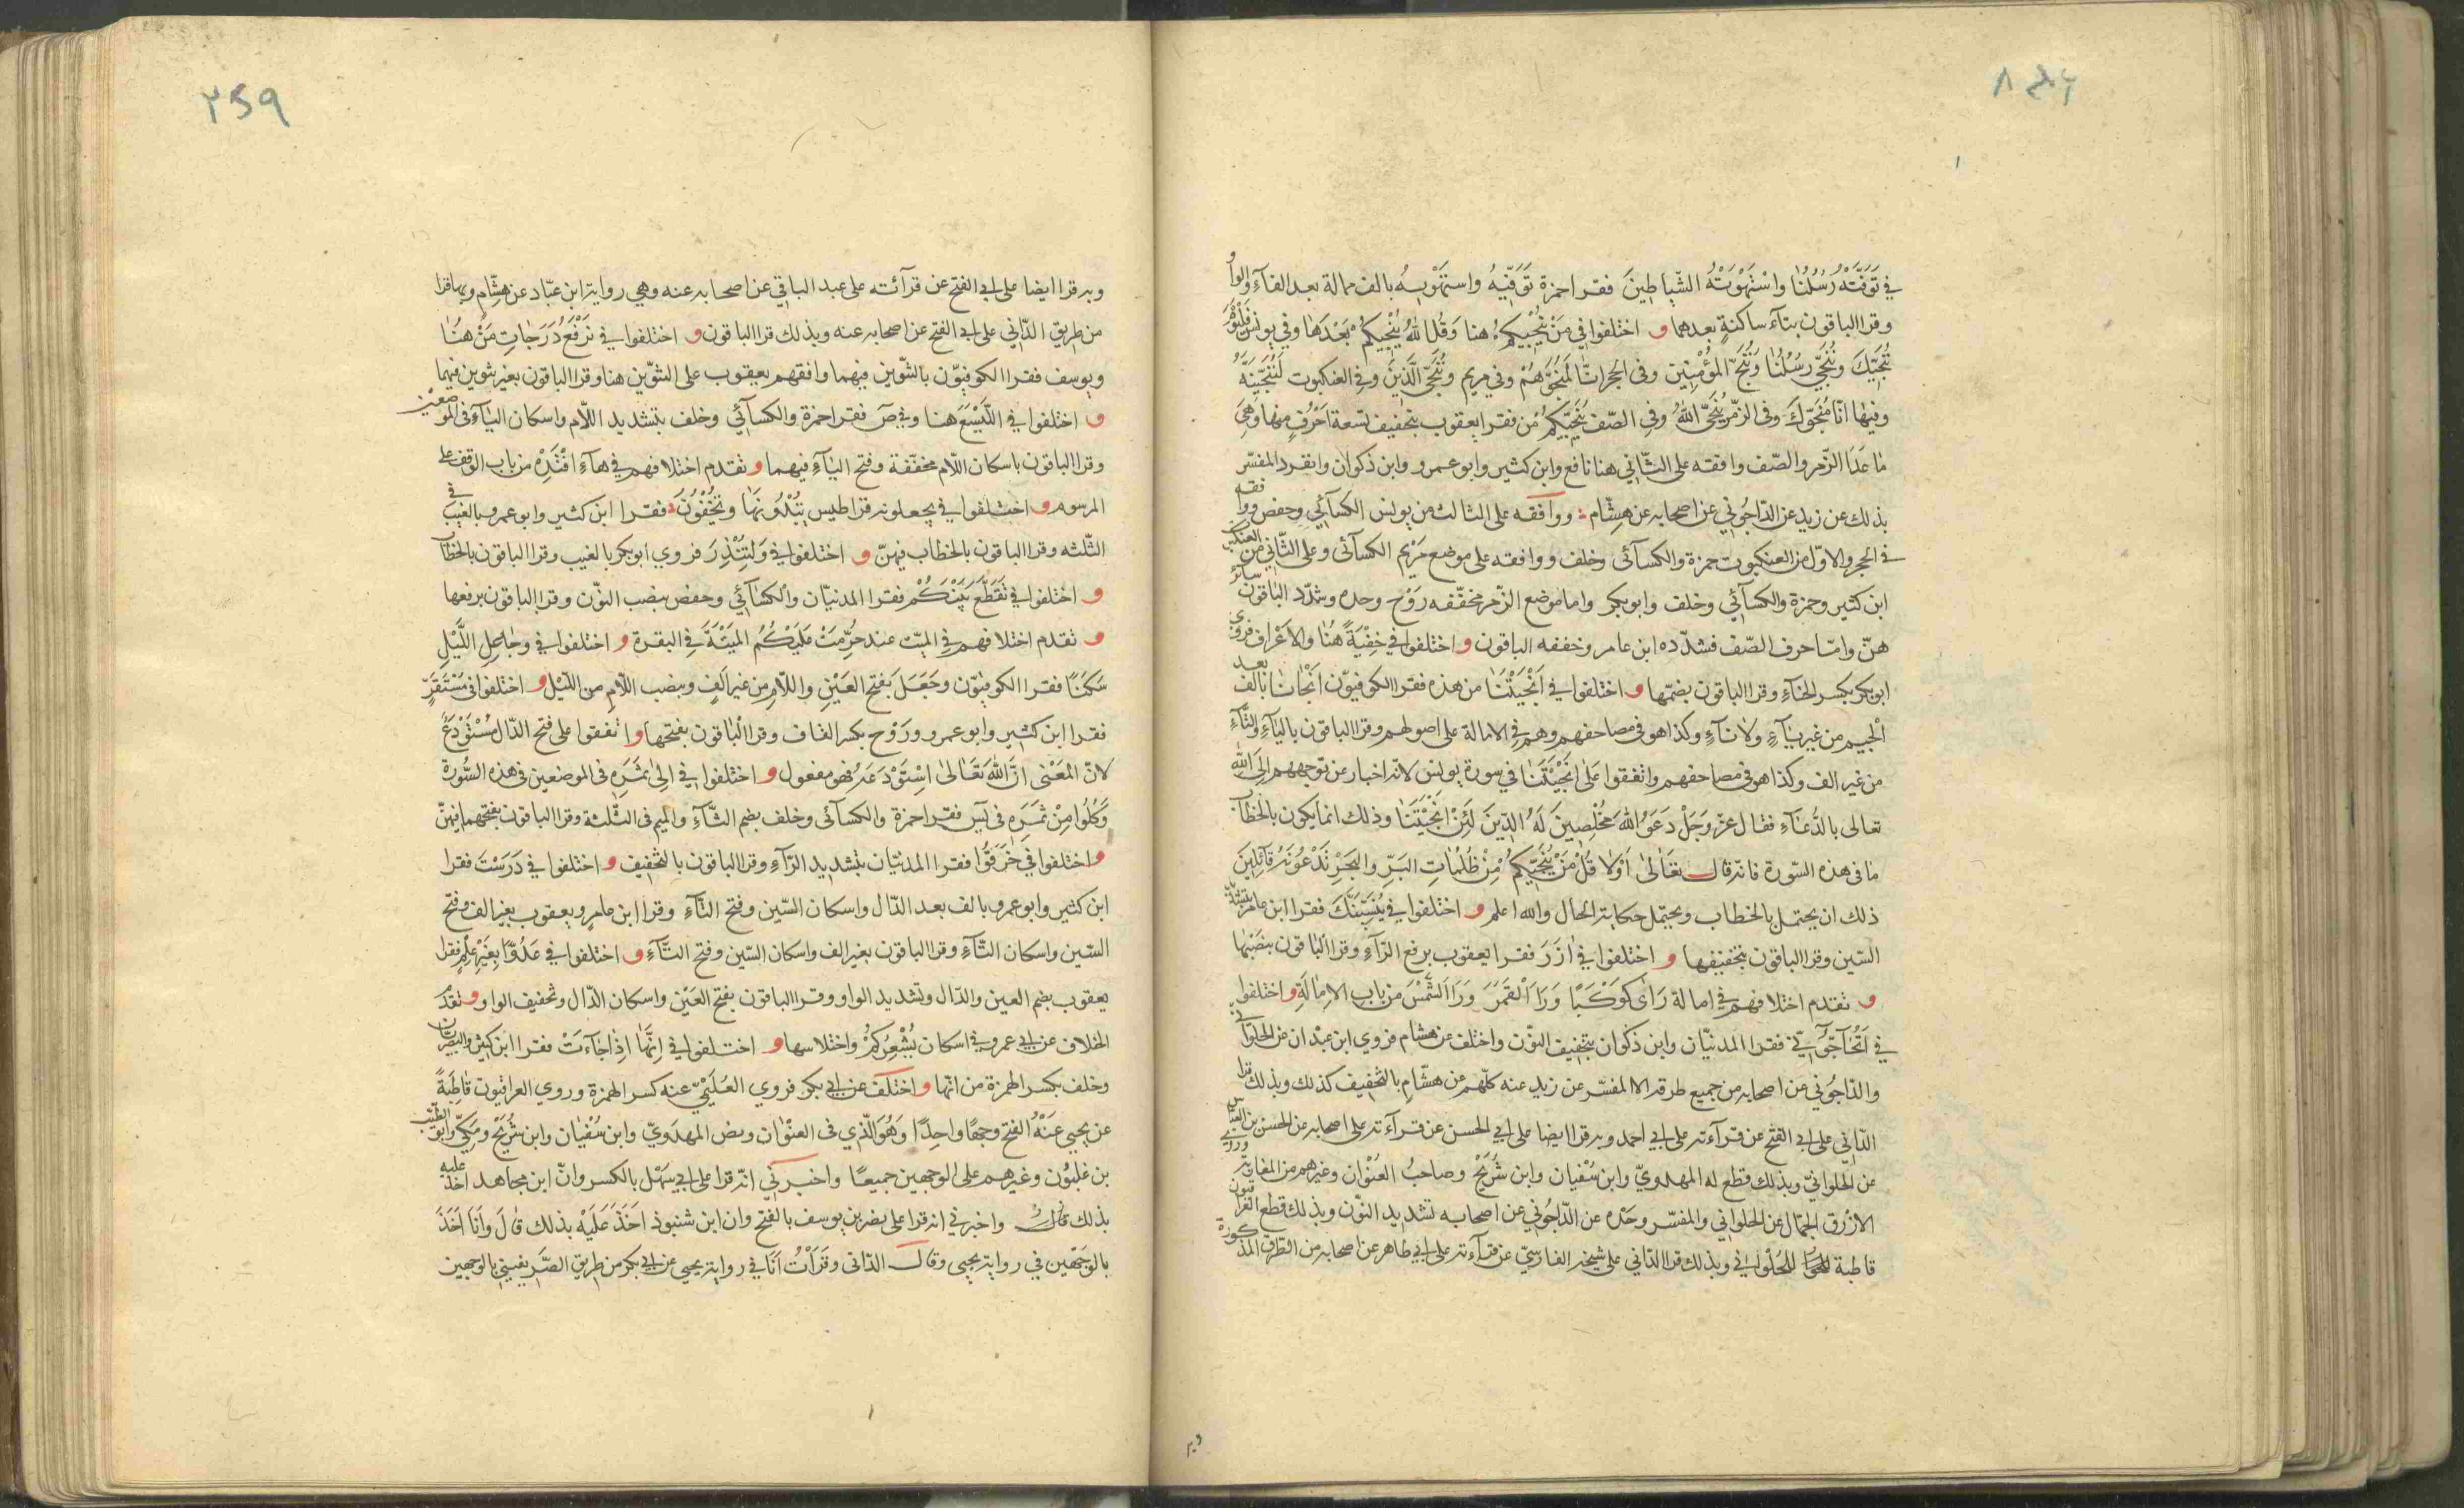 في تَوَفَّتْهُ رُسُلُنَا وَاسْتَهْوَتْهُ الشَّيَاطِينَ فقرا حمزة تَوَفّيهُ واستَهْويهُ بالف ممالة بعد الفآءِ والواو
وقرا الباقون بتآء ساكنةٍ بعدهما و اختلفوا في مَنْ يُنْجِيكُمْ هنا وَقُلِ اللهُ يُنْجِيكُمْ بَعْدَهٰا وفي يونس فَالْيَوْمَ
نُنَجِّيكَ وَنُنَجِّي رُسُلَنَا وَنُنْجِ المُؤْمِنِينَ وفي الحجر انّا لَمُنَجُّوهُمْ وفي مريم وَنُنَجِّي الَّذِينَ وفي العنكبوت لَنُنَجِّيَنَّهُ
وفيها انّا مُنَجُّوكَ وفي الزّمر يُنَجِّي اللهُ وفي الصّف تُنْجِيكُمْ مِن فقرا يعقوب بتخفيف تسعة اَحْرُفٍ منها وَهِيَ
مٰا عَدَا الزّمر والصّف وافقه على الثّاني هنا نافع وابن كثير وابو عمرو وابن ذكوان وانفرد المفسّر
بذلك عن زيد عن الدّاجُوني عن اصحابه عن هِشّام ووافقه على الثالث من يونس الكسآئي وحفص ووافقه
في الحجر والاوّل من العنكبوت حمزة والكسآئي وخلف ووافقه على موضع مَرْيم الكسآئي وعلى الثّاني من العنكبوت
ابن كثير وحمزة والكسآئي وخلف وابوبكر واما موضع الزّمر فخفّفه رَوْح وحده وشدّد الباقون سائر
هنّ وامّا حرف الصّف فشدّده ابن عامر وخففه الباقون و اختلفوا في خِفْيَةً هُنٰا والاَعْراف فروى
ابوبكر بكسر الخآءِ وقرا الباقون بضمّها و اختلفوا في اَنْجَيْتَنٰا من هذه فقرا الكوفيّون اَنْجٰانٰا بالف بعد
الْجيم من غير يآءٍ ولا تآءٍ وكذا هو في مصاحفهم وهم في الامالة على اصولهم وقرا الباقون باليآءِ والتّآءِ
من غير الف وكذا هو في مصاحفهم واتفقوا عَلى اَنْجَيْتَنٰا في سورة يونس لانّه اخبار عن توجههم اِلَى اللهِ
تعالى بالدُّعٰآءِ فقال عزّ وَجَلّ دَعَوُا اللهَ مُخْلِصِينَ لَهُ الدِّينَ لَئِنْ اَنْجَيْتَنٰا وذلك انما يكون بالخطاب
مٰا في هذه السّورة فانّه قال تَعٰالىٰ اَوّلاً قُلْ مَنْ يُنْجِيكُمْ مِنْ ظُلُمٰاتِ البَرِّ وَالبَحْرِ تَدْعُونَهُ قآئِلِينَ
ذلك ان يحتمل بالخطاب ويحتمل حكاية الحال والله اعلم و اختلفوا في يُنْسِيَنَّكَ فقرا ابن عامر بتشديد
السّين وقرا الباقون بتخفيفها و اختلفوا في اٰزَرَ فقرا يعقوب برفع الرّآءِ وقرا الباقون بنصبها
و تقدم اختلافهم في امالة رَاٰى كَوْكَبًا وَرَاَ اَلْقَمَرَ وَرَاَ الشَّمْسَ من باب الاِمٰالَةِ و اختلفوا
في اَتُحٰآجُّوٓنّي فقرا المدنيّان وابن ذكوان بتخفيف النوّن واختلف عن هشام فروى ابن عبْدان عن الحلوٰاني
والدّاجُوني عن اصحابه من جميع طرقه الا المفسّر عن زيد عنه كلّهم عن هشّام بالتخفيف كذلك وبذلك قرا
الدّاني على ابي الفتح عن قرآءته على ابي احمد وبه قرا ايضا على ابي الحسن عن قرآءته على اصحابه عن الحسن بن العبّاس
عن الحلوانيّ وبذلك قطع له المهدويّ وابن سُفيان وابن شُرَيْح وصاحبُ العُنْوٰان وغيرهم من المغاربة وروى
الازْرق الجمّال عن الحلواني والمفسّر وحْده عن الدّاجُوني عن اصحابه تشديد النوّن وبذلك قطع العراقيون
قاطبة للحُلْوٰاني وبذلك قرا الدّاني على شيخه الفارسيّ عن قرآءته على ابي طاهر عن اصحابه من الطّرق المذكورة
وبه قرا ايضا على ابي الفتح عن قرآئته على عبد الباقي عن اصحابه عنه وهي رواية ابن عبّاد عن هِشّامٍ وبها قرا
من طريق الدّاني على ابي الفتح عن اصحابه عنه وبذلك قرا الباقون و اختلفوا في نَرْفَعُ دَرَجٰاتٍ مَنْ هنٰا
ويوسف فقرا الكوفيوّن بالتّنوين فيهما وافقهم يعقوب على التنوّين هنا وقرا الباقون بغير تنوين فيهما
و اختلفوا في الّيَسَعَ هنا وفي صٓ فقرا حمزة والكسآئي وخلف بتشديد اللّام واسكان اليآءِ في الموضعين
وقرا الباقون باسكان اللّام مخفّفة وفتح اليٰآءِ فيهما و تقدم اختلافهم في هآءِ اقْتَدِهْ من باب الوقف على
المرسوم و اختلفوا في يجعلونه قراطيس يُبْدُونَهٰا وَيُخْفُونَ فقرا ابن كثير وابو عمرو بالغيب في
الثّلثه وقرا الباقون بالخطاب فيهنّ و اختلفوا في وَلِتُنْذِرَ فروى ابوبكر بالغيب وقرا الباقون بالخطاب
و اختلفوا في تَقَطَّعَ بَيْنَكُمْ فقرا المدنيّان والكسٰآئي وحفص بنصب النوّن وقرا الباقون برفعها
و تقدم اختلافهم في الميّت عند حُرِّمَتْ عَلَيْكُمُ المَيْتَةَ في البقرة و اختلفوا في وجٰاعِلِ اللَّيْلِ
سَكَنًا فقرا الكوفيّون وَجَعَلَ بفتح العَيْنِ واللّامِ من غير اَلفٍ وبنصب اللّام من اللّيْل و اختلفوا في مُسْتَقَرٌّ
فقرا ابن كثير وابو عمرو ورَوْح بكسر القاف وقرا الْبٰاقون بفتحها و اتفقوا على فتح الدّال مُسْتَوْدَعٌ
لانّ المَعْنى اِنَّ اللهَ تَعٰالىٰ اِسْتَوْدَعَهُ فهو مفعول و اختلفوا في اِلىٰ ثَمَرِه في الموضعين في هذه السُّورة
وَكُلُوا مِنْ ثَمَرِه في يٓس فقرا حمزة والكسآئي وخلف بضم الثّآءِ والميم في الثّلثة وقرا الباقون بفتحهما فيهنّ
و اختلفوا في خَرَقُوا فقرا المدنيّان بتشديد الرّآءِ وقرا الباقون بالتخفيف و اختلفوا في دَرَسْتَ فقرا
ابن كثير وابو عمرو بالف بعد الدّال واسكان السّين وفتح التّآءِ وقرا ابن عامرٍ ويعقوب بغير الف وفتح
السّين واسكان التّآءِ وقرا الباقون بغير الف واسكان السّين وفتح التّآءِ و اختلفوا في عَدُوًّا بِغَيْرِ عِلْمٍ فقرا
يعقوب بضم العين والدّال وتشديد الواو وقرا الباقون بفتح العَيْن واسكان الدّال وتخفيف الواو و تقدّم
الخلاف عن ابي عمرو في اسكان يُشْعِرُكُمْ واختلاسها و اختلفوا في اِنَّهٰا اِذٰا جٰآءَتْ فقرا ابن كثير والبصريّان
وخلف بكسر الهمزة من انّها و اختلف عن ابي بكر فروى العُلَيْميّ عنه كسر الهمزة وروى العراقيّون قٰاطِبَةً
عن يحيى عَنْهُ الفتح وجهًا واحِدًا وَهُوَ الّذي في العنْوٰان ونص المهدَويّ وابن سُفْيان وابن شُرَيْح ومكيّ وابو الطّيّب
بن غلبُون وغيرهم على الوجهين جميعًا واخبرني انّه قرا على ابي سَهْل بالكسر وانّ ابن مجاهد اخذ عليه
بذلك قالَ واخبرني انه قرا على نصر بن يوسف بالفتح وان ابن شنبوذ اَخَذَ عَلَيْه بذلك قٰالَ وَاَنَا اٰخُذُ
بالوَجهَيْن في رواية يحيى وقال الدّاني وقَرَأتُ اَنَا في رواية يحيى عن ابي بكر من طريق الصَّريفيني بالوجهين
وبه
٢٥٩